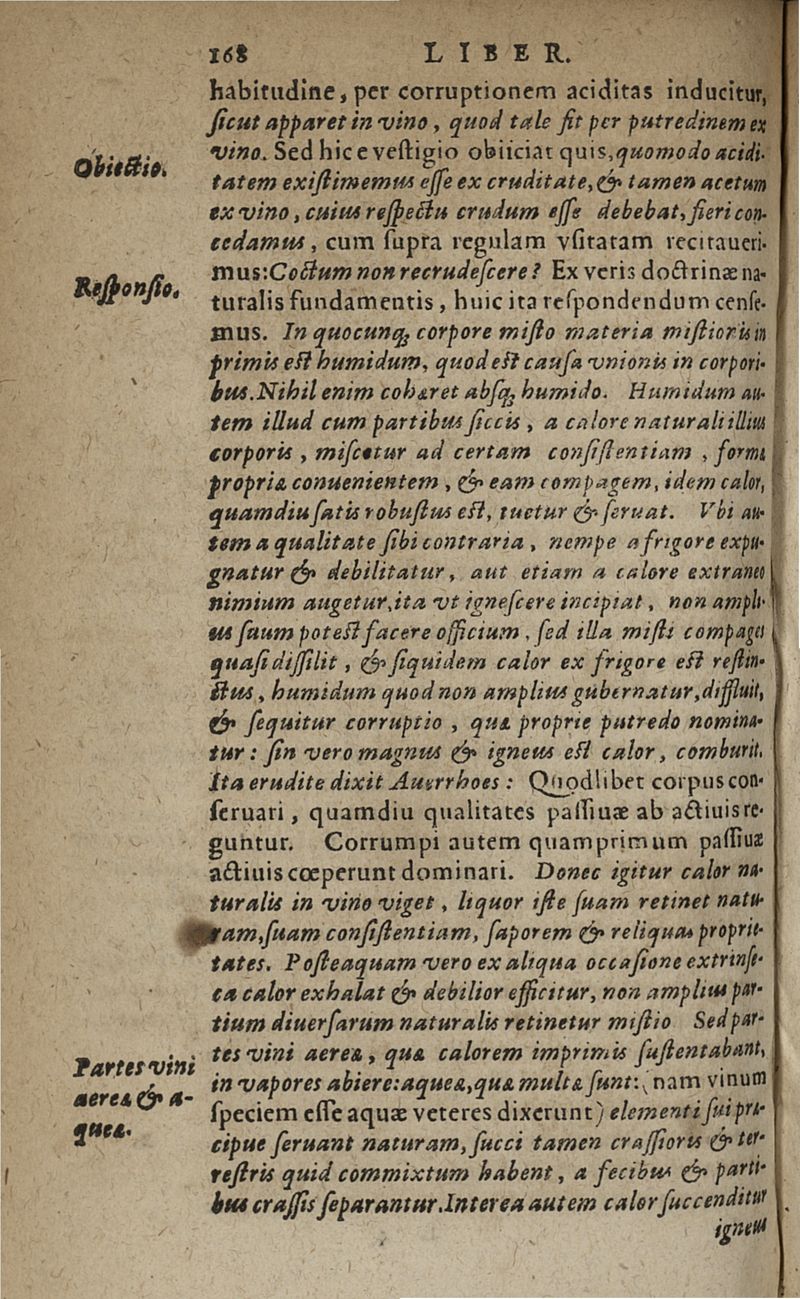 168 LIBER.
habitudine, per corruptionem aciditas inducitur,
sicut apparet in vino, quod tale fit per putredinem ex
vino. Sed hic e vestigio obiiciat quis, quomodo acidi-
Obiectio.
tatem existimemus esse ex cruditate, & tamen acetum
ex vino, cuius respectu crudum esse debebat, fieri con-
cedamus, cum supra regulam vsitatam recitaueri-
mus: Coctum non recrudescere? Ex veris doctrinæ na-
Responsio.
turalis fundamentis, huic ita respondendum cense-
mus. In quocunq; corpore misto materia mistionis in
primis est humidum, quod est causa vnionis in corpori-
bus. Nihil enim cohæret absq; humido. Humidum au-
tem illud cum partibus siccis, a calore naturali illius
corporis, miscetur ad certam consistentiam, formæ
propriæ conuenientem, & eam compagem, idem calor,
quamdiu satis robustus est, tuetur & seruat. Vbi au-
tem a qualitate sibi contraria, nempe a frigore expu-
gnatur & debilitatur, aut etiam a calore extraneo
nimium augetur, ita vt ignescere incipiat, non ampli-
us suum potest facere officium, sed illa misti compages
quasi dissilit, & siquidem calor ex frigore est restin-
ctus, humidum quod non amplius gubernatur, diffluit,
& sequitur corruptio, quæ proprie putredo nomina-
tur: sin vero magnus & igneus est calor, comburit.
Ita erudite dixit Auerrhoes: Quodlibet corpus con-
seruari, quamdiu qualitates passiuæ ab actiuis re-
guntur. Corrumpi autem quamprimum passiuæ
actiuis cœperunt dominari. Donec igitur calor na-
turalis in vino viget, liquor iste suam retinet natu-
ram, suam consistentiam, saporem & reliquas proprie-
tates. Posteaquam vero ex aliqua occasione extrinse-
ca calor exhalat & debilior efficitur, non amplius par-
tium diuersarum naturalis retinetur mistio Sed par-
tes vini aereæ, quæ calorem imprimis sustentabant,
Partes vini
aereæ & a-
queæ.
in vapores abiere: aqueæ, quæ multæ sunt: (nam vinum
speciem esse aquæ veteres dixerunt) elementi sui præ-
cipue seruant naturam, succi tamen crassioris & ter-
restris quid commixtum habent, a fecibus & parti-
bus crassis separantur. Interea autem calor succenditur
igneus